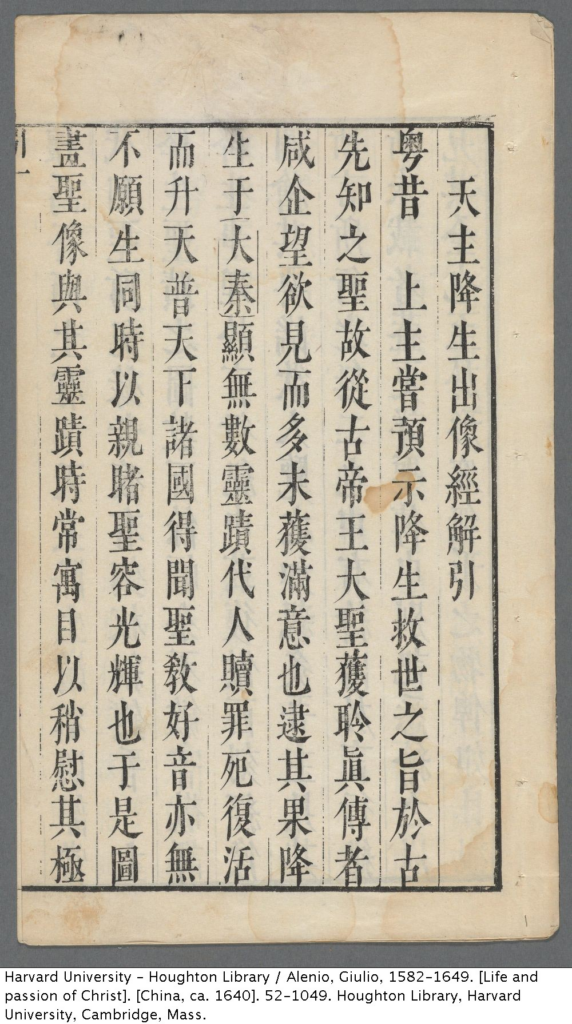 天主降生出像經解引
粵昔　上主嘗預示降生救世之旨於古
先知之聖故從古帝王大聖獲聆眞傳者
咸企望欲見而多未獲滿意也逮其果降
生于大秦顯無數靈蹟代人贖罪死復活
而升天普天下諸國得聞聖敎好音亦無
不願生同時以親睹聖容光輝也于是圖
畫聖像與其靈蹟時常寓目以稍慰其極
Harvard University – Houghton Library / Alenio, Giulio, 1582-1649. [Life and
passion of Christ]. [China, ca. 1640]. 52-1049. Houghton Library, Harvard
University, Cambridge, Mass.